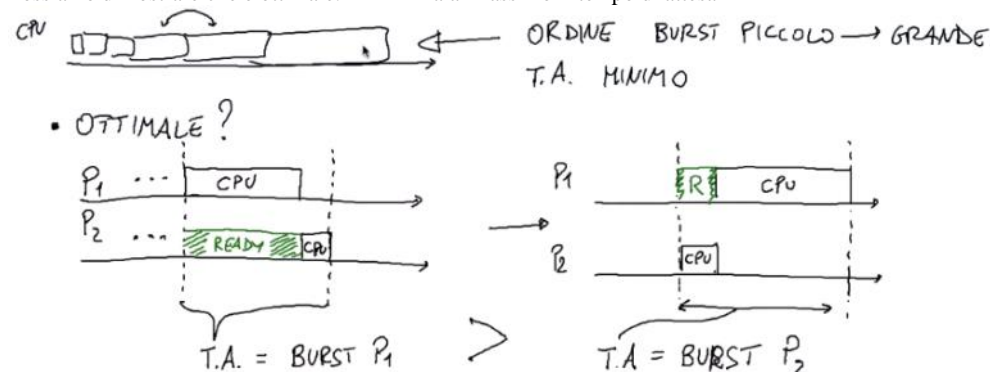 CPU
ORDINE BURST PICCOLO → GRANDE
T.A. MINIMO
• OTTIMALE?
P1 ... CPU
P2 ... READY CPU
T.A. = BURST P1
>
P1 R CPU
P2 CPU
T.A = BURST P2